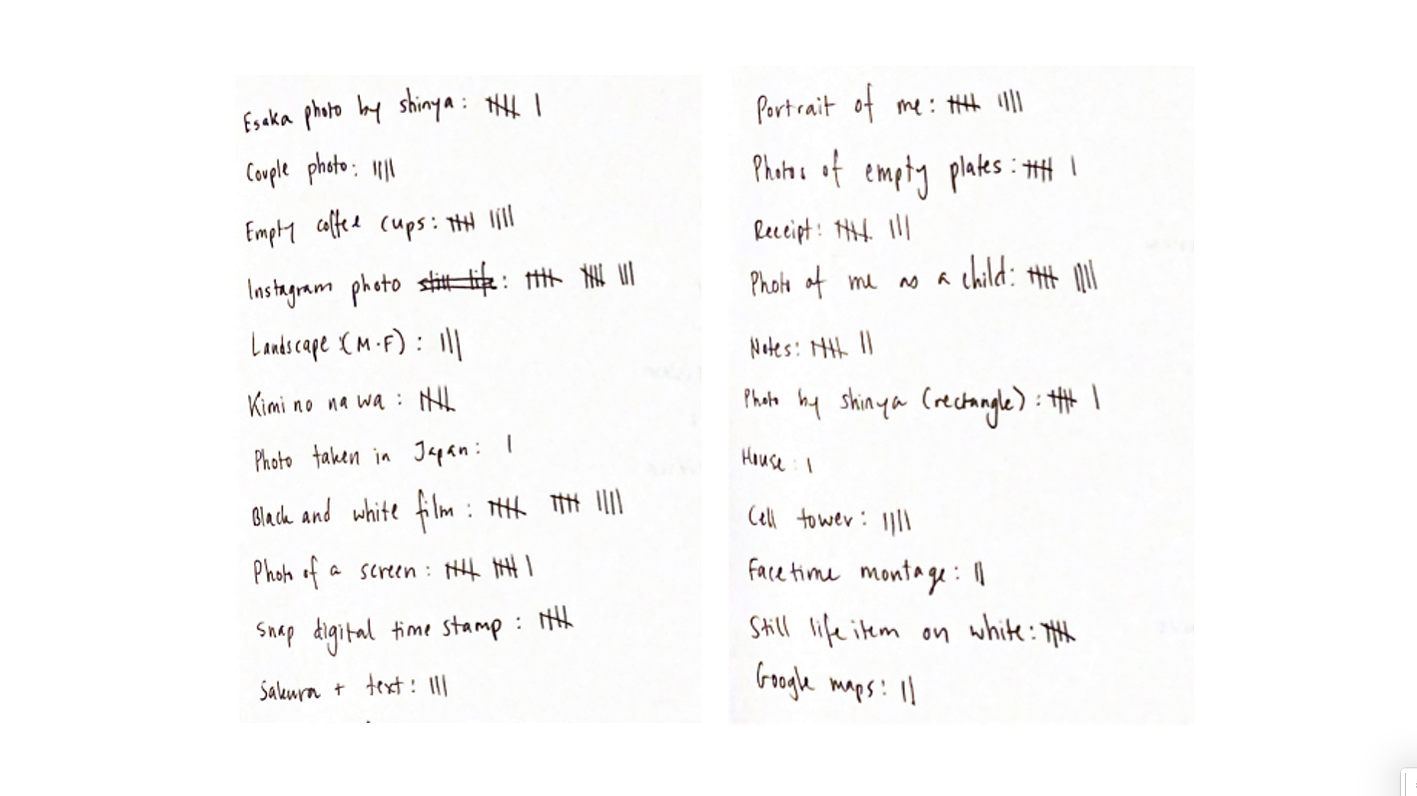 Esaka photo by shinya: 卌 |
Couple photo: ||||
Empty coffee cups: 卌 ||||
Instagram photo still life: 卌 卌 |||
Landscape (M.F): |||
Kimi no na wa: 卌
Photo taken in Japan: |
Black and white film: 卌 卌 ||||
Photo of a screen: 卌 卌 |
Snap digital time stamp: 卌
Sakura + text: |||
Portrait of me: 卌 ||||
Photos of empty plates: 卌 |
Receipt: 卌 |||
Photo of me as a child: 卌 ||||
Notes: 卌 ||
Photo by shinya (rectangle): 卌 |
House: |
Cell tower: ||||
Facetime montage: ||
Still life item on white: 卌
Google maps: ||